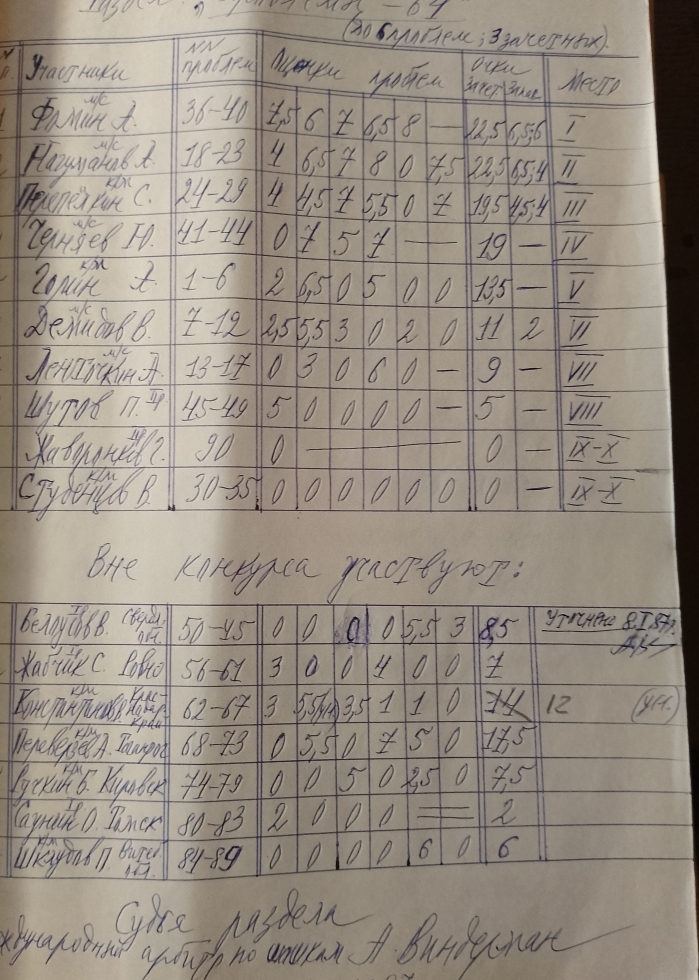 – 64
(до 6 проблем; 3 зачетных).
Участники NN проблем Оценки проблем Очки зачет. запас Место
Фомин А. м/с 36-40 7,5 6 7 6,5 8 — 22,5 6,5;6 I
Нагуманов А. м/с 18-23 4 6,5 7 8 0 7,5 22,5 6,5;4 II
Перепёлкин С. кмс 24-29 4 4,5 7 5,5 0 7 19,5 4,5;4 III
Черняев Ю. м/с 41-44 0 7 5 7 — 19 — IV
Горин А. кмс 1-6 2 6,5 0 5 0 0 13,5 — V
Демидов В. м/с 7-12 2,5 5,5 3 0 2 0 11 2 VI
Ленточкин А. м/с 13-17 0 3 0 6 0 — 9 — VII
Шутов П. 45-49 5 0 0 0 0 — 5 — VIII
Жаворонков Г. 90 0 — 0 — IX-X
Студенцов В. кмс 30-35 0 0 0 0 0 0 0 — IX-X
Вне конкурса участвуют:
В. 50-45 0 0 0 0 5,5 3 8,5 Уточнено 8.I.87г.
Жабчик С. Ровно 56-61 3 0 0 4 0 0 7
62-67 3 5,5 3,5 1 1 0 14 12
А. 68-73 0 5,5 0 7 5 0 17,5
Б. Кировск 74-79 0 0 5 0 2,5 0 7,5
О. Томск 80-83 2 0 0 0 = 2
Шклудов П. 84-89 0 0 0 0 6 0 6
Судья раздела
международный арбитр по шашкам А. Виндерман